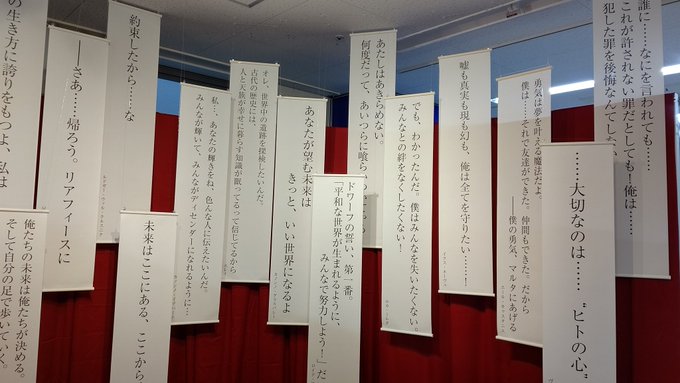 誰に……なにを言われても……
これが許されない罪だとしても！俺は……
犯した罪を後悔なんてしない
……大切なのは……〝ヒトの心〟
勇気は夢を叶える魔法だよ。
僕は……それで友達ができた。仲間もできた。だから
僕の勇気、マルタにあげる
嘘も真実も現も幻も、俺は全てを守りたい……！
でも、わかったんだ。僕はみんなを失いたくない。
みんなとの絆をなくしたくない！
あたしはあきらめない。
何度だって、あいつらに喰ら
ドワーフの誓い、第一番。
「平和な世界が生まれるように、
みんなで努力しよう！」だ
あなたが望む未来は
きっと、いい世界になるよ
オレ、世界中の遺跡を探検したいんだ。
古代の歴史には、
人と天族が幸せに暮らす知識が眠ってるって信じてるから
私…、あなたの輝きをね、色んな人に伝えたいんだ。
みんなが輝いて、みんながディセンダーになれるように…
約束したから……な
未来はここにある、ここから
――さあ……帰ろう。リアフィースに
の生き方に誇りをもつよ、私は
俺たちの未来は俺たちが決める。
そして自分の足で歩いていく。